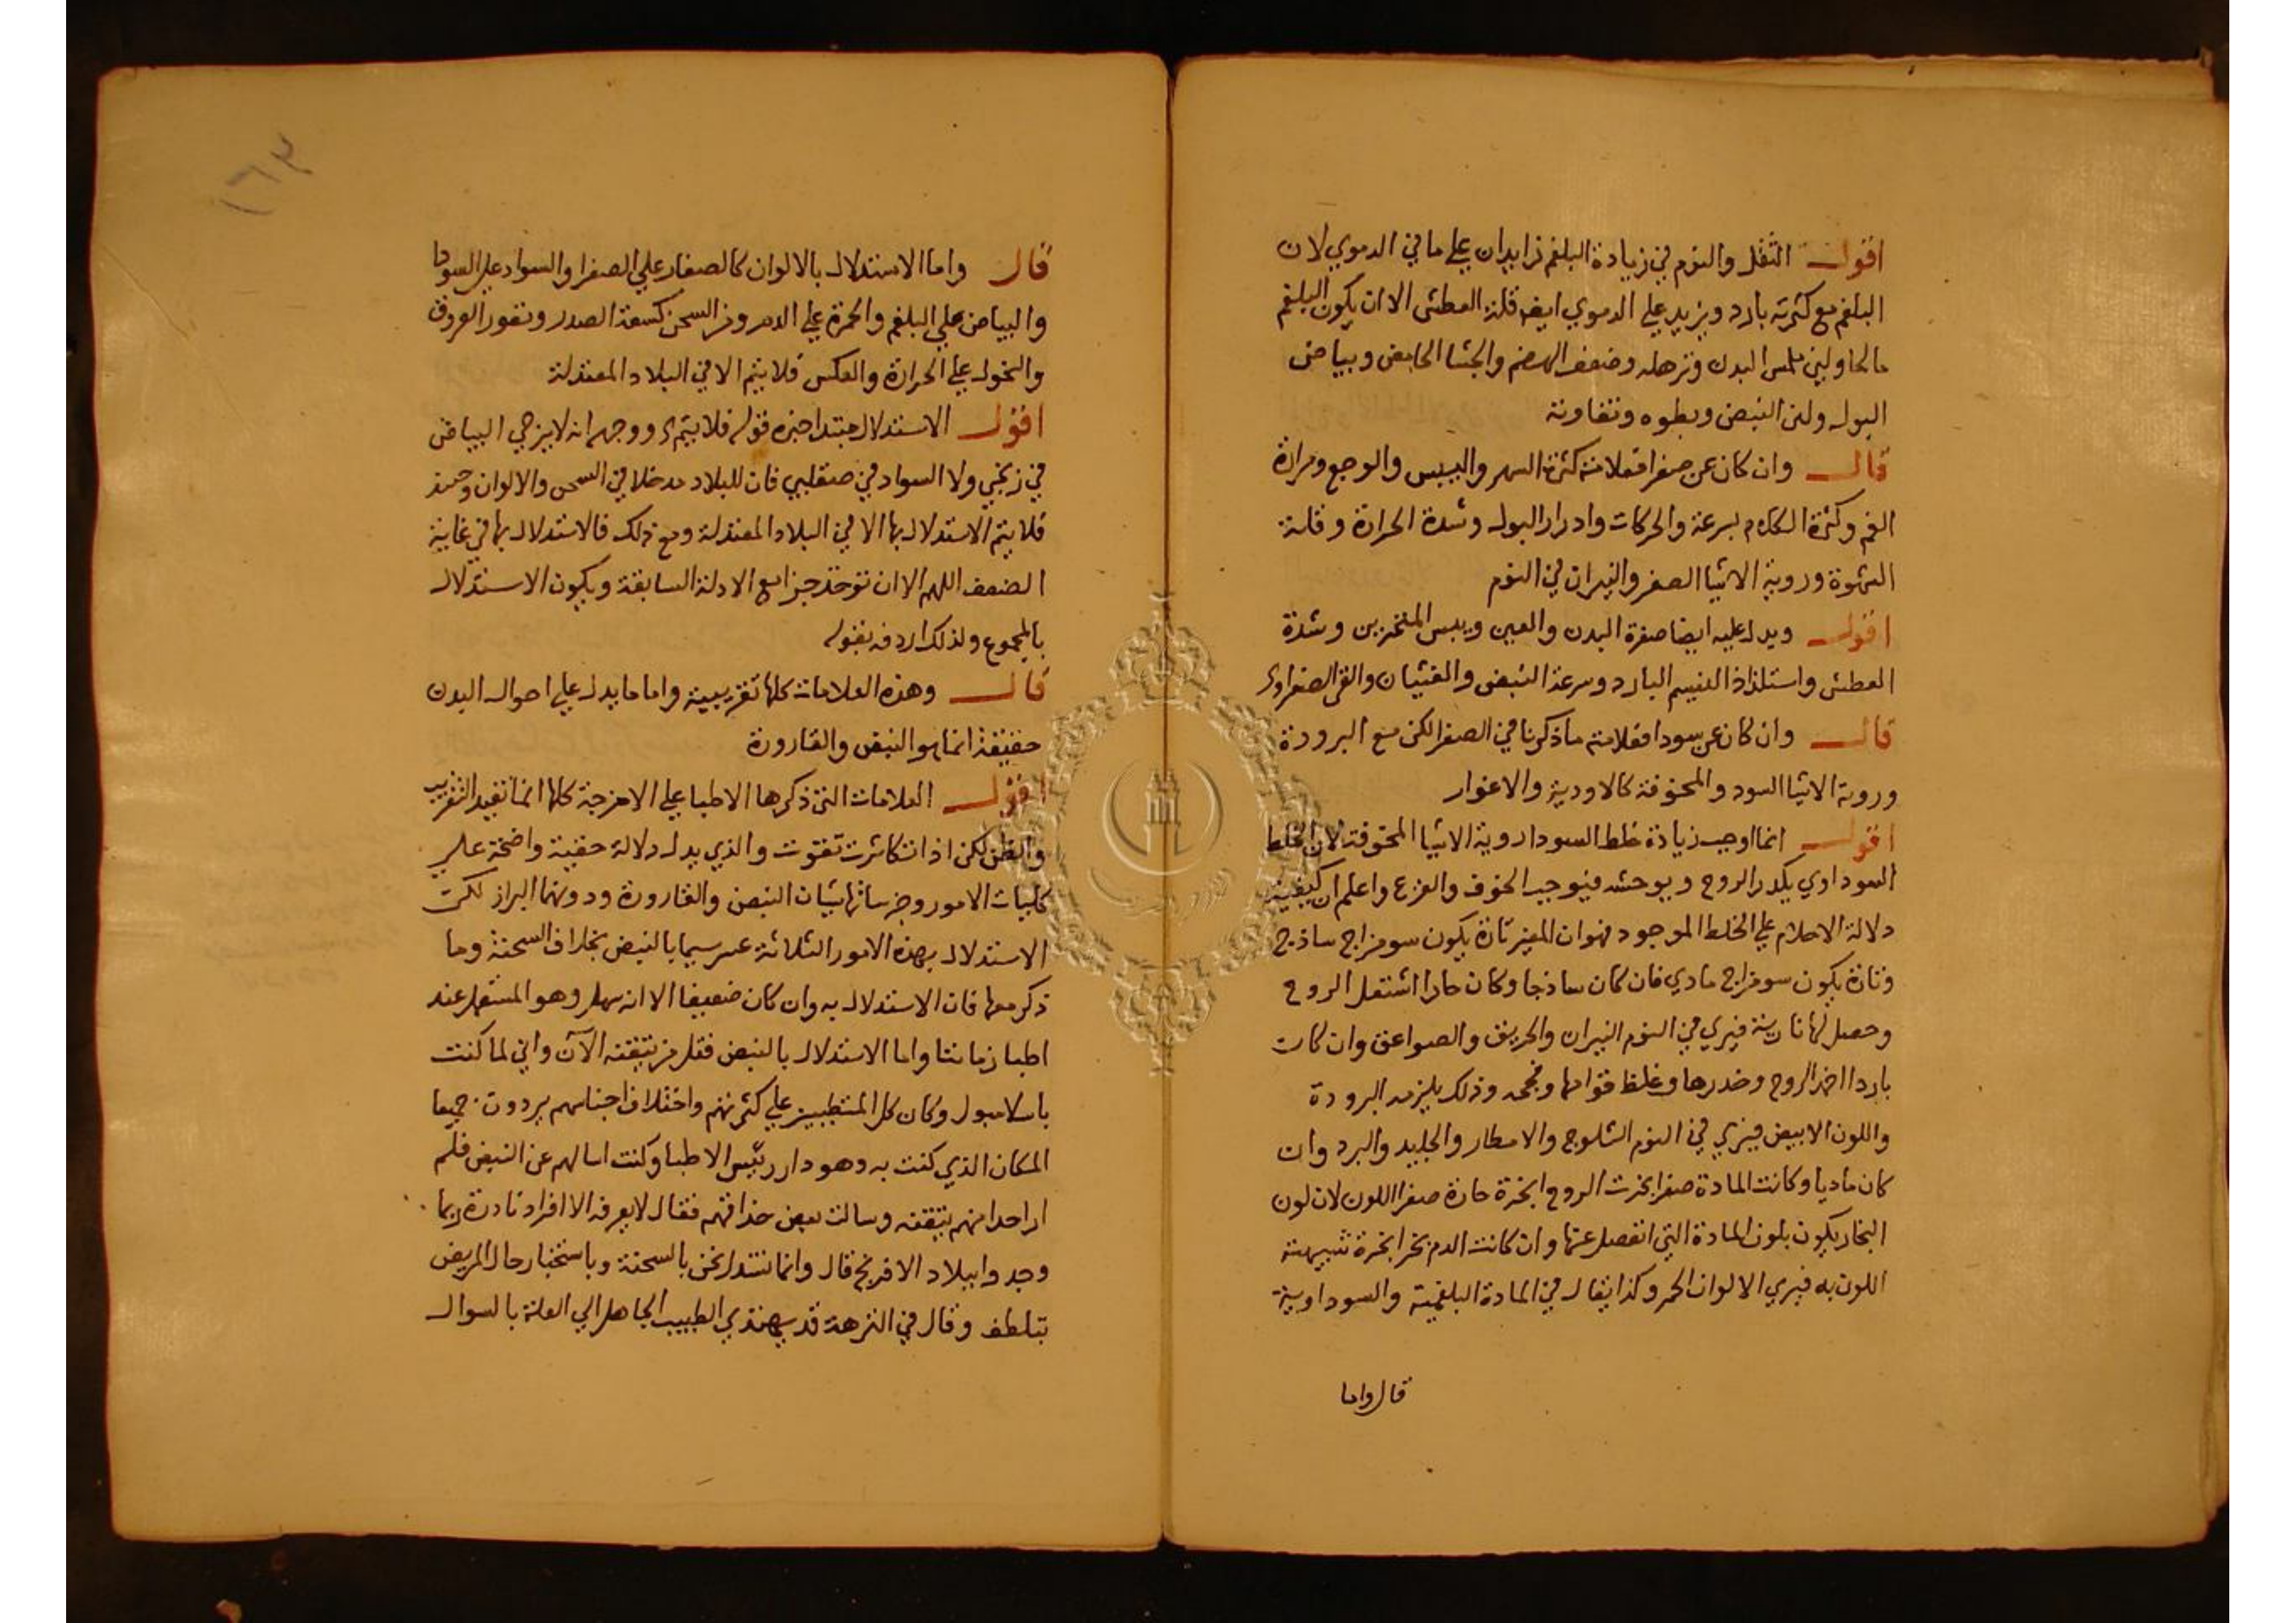 اقول الثقل والنوم في زيادة البلغم زايدان علي ما في الدموي لان
البلغم مع كثرته بارد ويزيد علي الدموي ايضا قلة العطش الا ان يكون البلغم
مالحا ولين ملمس البدن وترهله وضعف الهضم والجشا الحامض وبياض
البول ولين النبض وبطوه وتفاوته
قال وان كان عن صفرا فعلامته كثرة السهر واليبس والوجع ومرارة
الفم وكثرة الكلام بسرعة والحركات وادرار البول وشدة الحرارة وقلة
الشهوة وروية الاشيا الصفر والنيران في النوم
اقول ويدل عليه ايضا صفرة البدن والعين ويبس المنخرين وشدة
العطش واستلذاذ النسيم البارد وسرعة النبض والغثيان والقي الصفراوي
قال وان كان عن سودا فعلامته ما ذكرنا في الصفرا لكن مع البرودة
وروية الاشيا السود والمخوفة كالاودية والاغوار
اقول انما اوجب زيادة خلط السودا روية الاشيا المخوفة لان الخلط
السوداوي يكدر الروح ويوحشه فيوجب الخوف والفزع واعلم ان كيفية
دلالة الاحلام علي الخلط الموجود فهو ان المغير تارة يكون سو مزاج ساذج
وتارة يكون سو مزاج مادي فان كان ساذجا وكان حارا اشتعل الروح
وحصل لها نارية فيري في النوم النيران والحريق والصواعق وان كان
باردا اخمد الروح وخدرها وغلظ قوامها وذلك يلزمه البرودة
واللون الابيض فيري في النوم الثلوج والامطار والجليد والبرد وان
كان ماديا وكانت المادة صفرا بخرت الروح ابخرة حارة صفرا اللون لان لون
البخار يكون بلون المادة التي انفصل عنها وان كانت الدم بخر ابخرة شبيهة
اللون به فيري الالوان الحمر وكذا يقال في المادة البلغمية والسوداوية
قال واما
١٦٣
قال واما الاستدلال بالالوان كالصفار علي الصفرا والسواد علي السودا
والبياض علي البلغم والحمرة علي الدم ومن السحن كسعة الصدر ونفور العروق
والنحول علي الحرارة والعكس فلا يتم الا في البلاد المعتدلة
اقول الاستدلال مبتدا خبره قوله فلا يتم ووجهه انه لا يرجي البياض
في زنجي ولا السواد في صقلبي فان للبلاد مدخلا في السحن والالوان وحينئذ
فلا يتم الاستدلال بها الا في البلاد المعتدلة ومع ذلك فالاستدلال بها في غاية
الضعف اللهم الا ان توخذ جزا مع الادلة السابقة ويكون الاستدلال
بالمجموع ولذلك اردفه بقوله
قال وهذه العلامات كلها تقريبية واما ما يدل علي احوال البدن
حقيقة انما هو النبض والقارورة
اقول العلامات التي ذكرها الاطبا علي الامزجة كلها انما تفيد التقريب
والظن لكن اذا تكاثرت تقوت والذي يدل دلالة حقيقة واضحة علي
كليات الامور وجزياتها شيان النبض والقارورة ودونهما البراز لكن
الاستدلال بهذه الامور الثلاثة عسر سيما بالنبض بخلاف السحنة وما
ذكر معها فان الاستدلال به وان كان ضعيفا الا انه سهل وهو المستعمل عند
اطبا زماننا واما الاستدلال بالنبض فقل من يتقنه الآن واني لما كنت
باسلامبول وكان كل المتطببين علي كثرتهم واختلاف اجناسهم يردون جميعا
المكان الذي كنت به وهو دار رئيس الاطبا وكنت اسالهم عن النبض فلم
ار احدا منهم يتقنه وسالت بعض حذاقهم فقال لا يعرفه الا افراد نادرة ربما
وجدوا ببلاد الافرنج قال وانما نستدل نحن بالسحنة وباستخبار حال المريض
بتلطف وقال في النزهة قد يهتدي الطبيب الجاهل الي العلة بالسوال